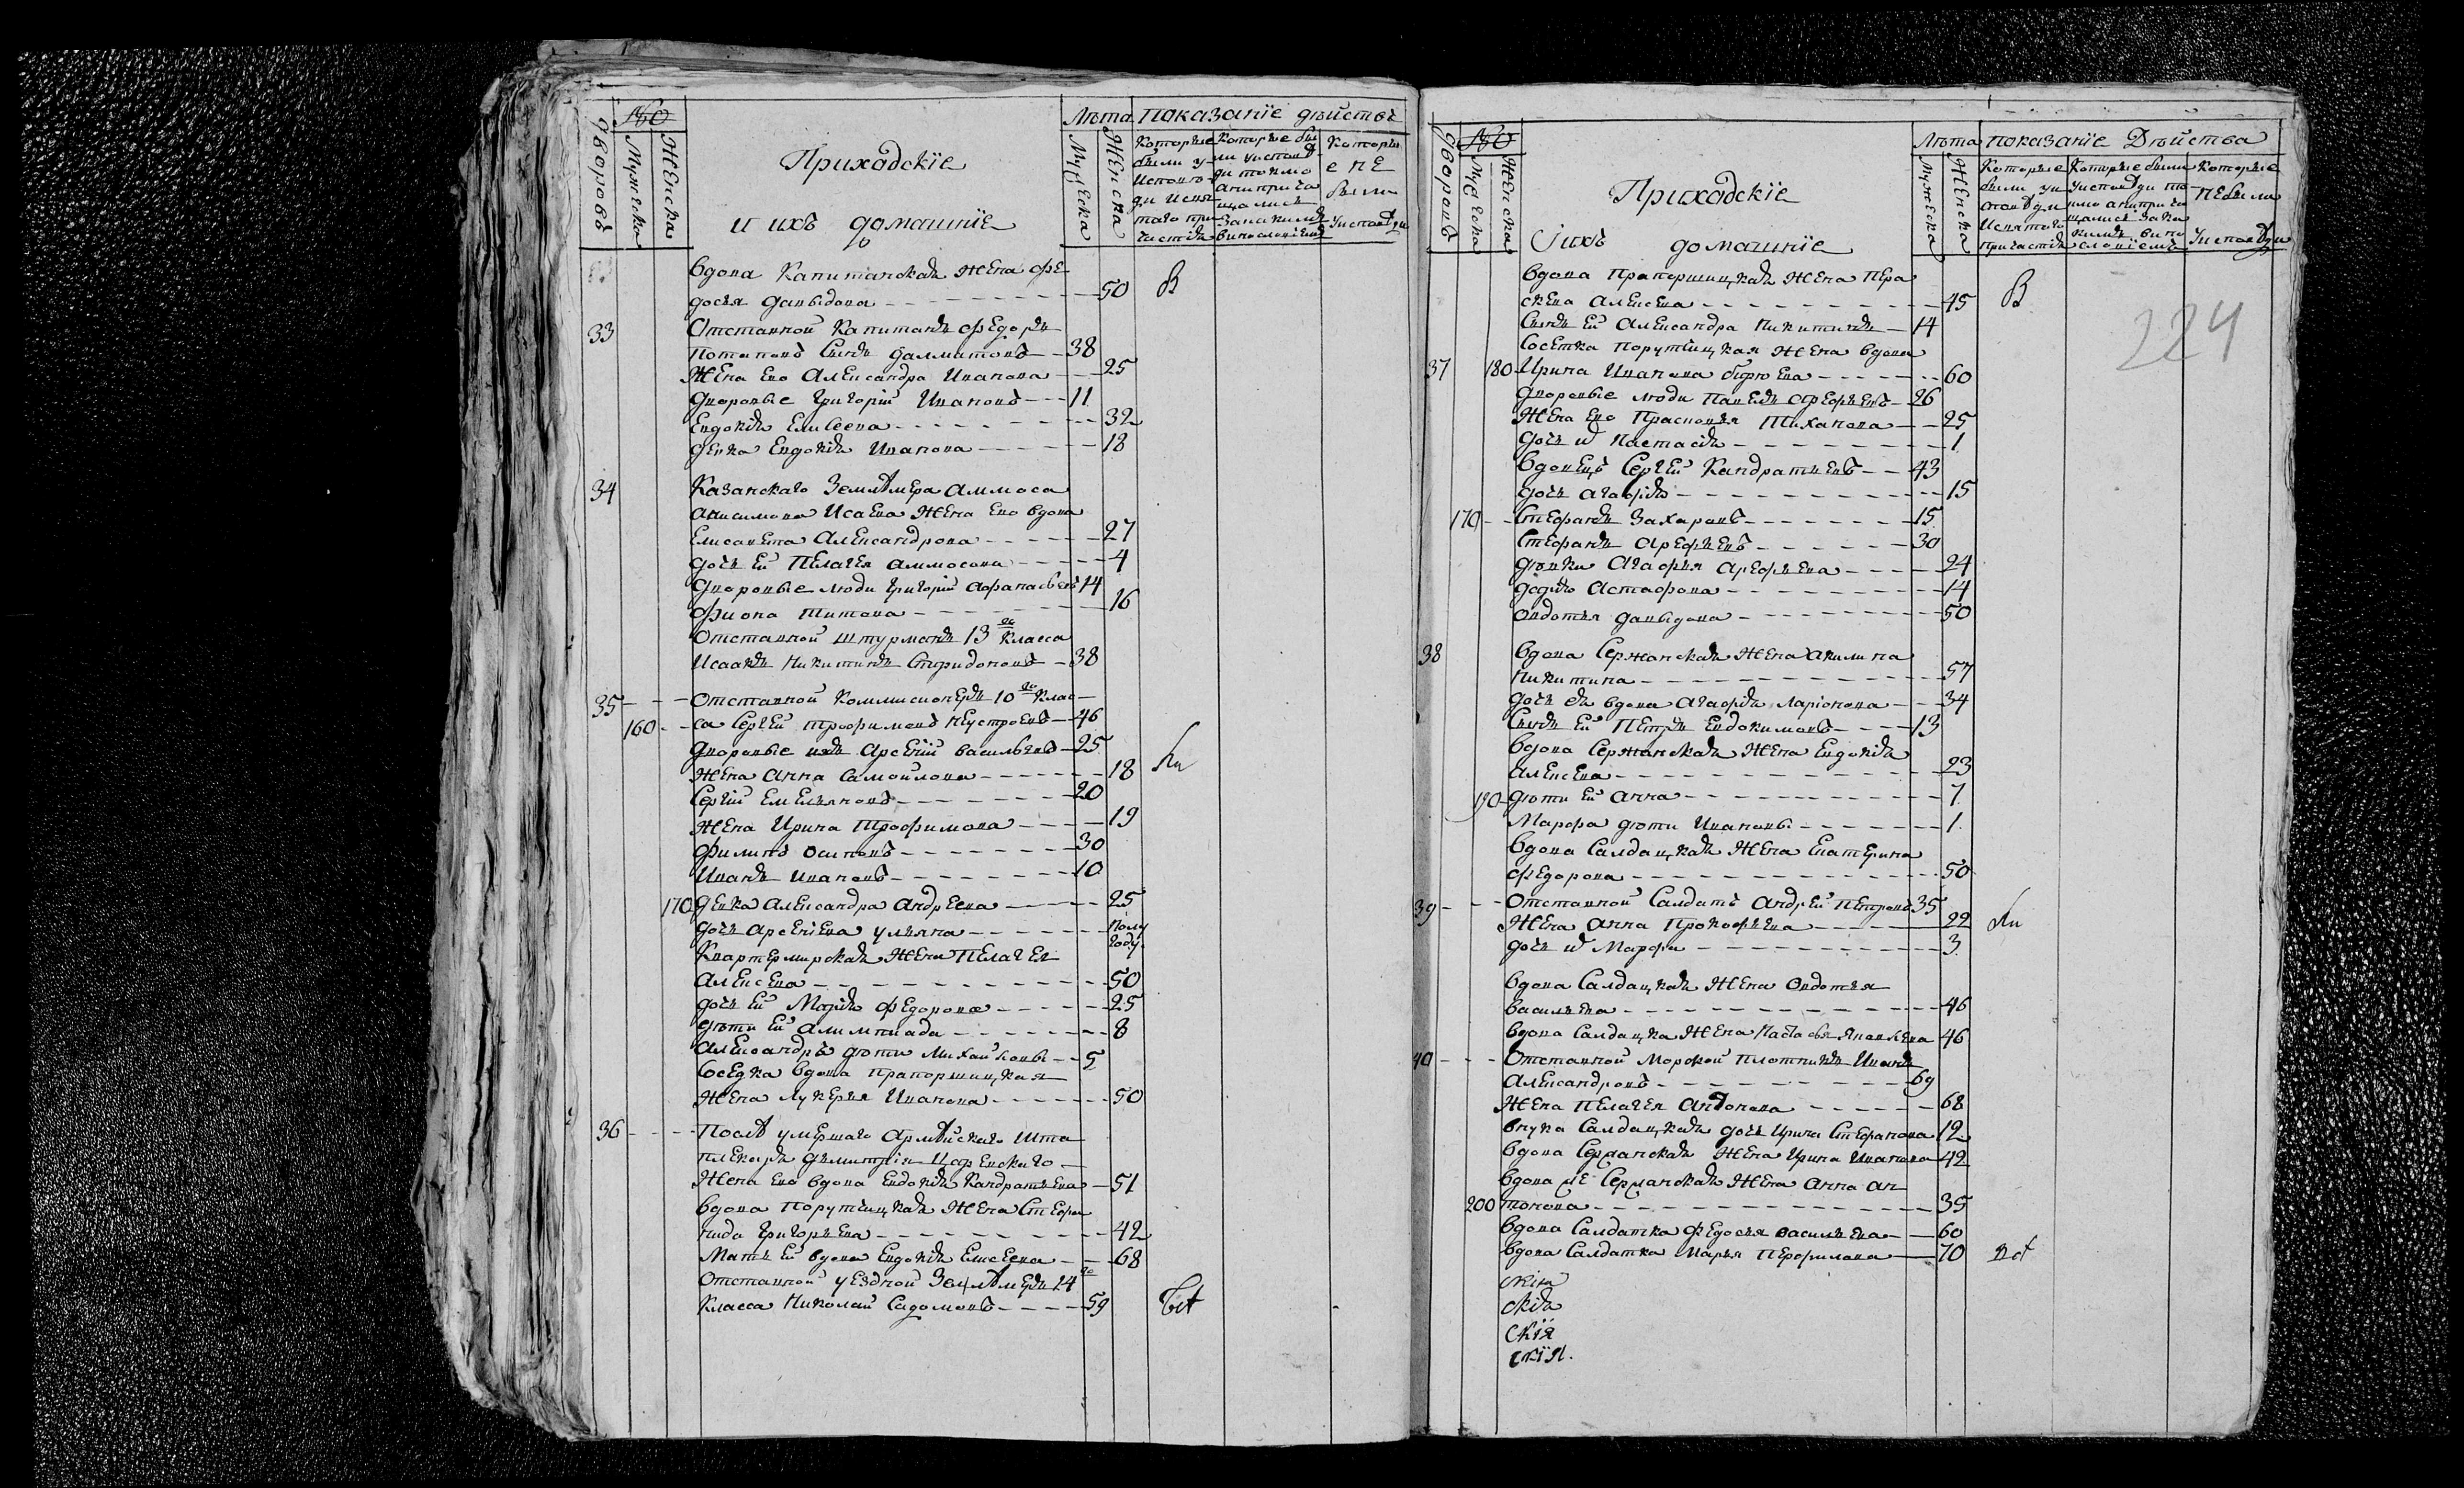 №
Лѣта показанїе дѣйствъ
дворовъ
Мужеска
Женска
Прихадскїе
и ихъ домашнїе
Мужеска
Женска
Которые были у исповѣди и святаго причастїя
Которые были у исповѣди токмо а не причащались за каким винословїемъ
Которые не были у исповѣди
вдова Капитанская жена Фе
досья Давыдова 50 В
33 Отставной Капитанъ Федоръ
Потаповъ сынъ Далматовъ 38
Жена ево Александра Иванова 25
Дворовые Григорїй Ивановъ 11
Евдокїя Елисеева 32
девка Евдокїя Иванова 18
34 Казанскаго Землѣмера Аммоса
Анисимова Исаева жена ево вдова
Елисавета Александрова 27
дочь ей Пелагея Аммосова 4
Дворовые люди Григорїй Афанасьевъ 14
Фиона Титова 16
Отставной штурманъ 13го Класса
Исаакъ Никитинъ Спиридоновъ 38
35 Отставной Коммисионеръ 10го Клас
160 са Сергей Трофимовъ Неустроевъ 46
Дворовые Арсенїй Васильевъ 25
Жена Анна Самойлова 18
Сергїй Емельяновъ 20
Жена Ирина Трофимова 19
Филипъ Осиповъ 30
Иванъ Ивановъ 10
170 Девка Александра Андреева 25
дочь Арсенїева Ульяна полу году
Квартермирская жена Пелагея
Алексеева 50
дочь ей Марїя Федорова 25
дѣти ей Алимпиада 8
Александръ дѣти Михайловы 5
Соседка вдова прапорщицкая
Жена Лукерья Иванова 50
36 Послѣ умершаго Армѣйскаго Шта
плекаря Дъмитрїя
Жена ево вдова Евдокїя Кандратьева 51
вдова Порутчицкая жена Стефа
нида Григорьева 42
Мать ей вдова Евдокїя Елисеева 68
Отставной уездной Землѣмеръ 14го
Класса Николай Садомовъ 59
№
Лѣта показанїе Дѣйства
дворовъ
Мужеска
Женска
Прихадскїе
и ихъ домашнїе
Мужеска
Женска
Которые были у исповѣди и святаго причастїя
Которые были у исповѣди токмо а не причащались за каким винословїемъ
Которые не были у исповѣди
224
вдова Прапорщицкая жена Пера
скева Алексеева 45 В
Сынъ ей Александра Никитинъ 14
Соседка порутчицкая жена вдова
37 180 Ирина Иванова 60
Дворовые люди Павелъ Арефьевъ 26
Жена ево Прасковья Тиханова 25
дочь их Настасїя 1
Вдовецъ Сергей Кандратьевъ 43
дочь Агафїя 15
170 Стефанъ Захаровъ 15
Стефанъ Арефьевъ 30
девки Агафья Арефьева 24
Астафова 14
Овдотья Давыдова 50
38 Вдова Сержанская жена Акилина
Никитина 57
дочь ея вдова Агафїя Ларїонова 34
Сынъ ей Петръ Евдокимовъ 13
Вдова Сержанская жена Евдокїя
Алексеева 23
190 дѣти ей Анна 7
Марфа дѣти Ивановы 1
Вдова Салдацкая жена Екатерина
Федорова 50
39 Отставной Салдатъ Андрей Петровъ 35
Жена Анна Прокофьева 22
дочь их Марфа 3
вдова Салдацкая жена Овдотья
Васильева 46
вдова Салдацка жена Настасья 46
40 Отставной Морской плотникъ Иванъ
Александровъ 69
Жена Пелагея Антонова 68
внука Салдацкая дочь Ирина Стефанова 12
вдова Сержанская жена Ирина Иванова 42
вдова же Сержанская жена Анна Ан
200 тонова 35
вдова Салдатка Федосья Васильева 60
вдова Салдатка Марья Перфилова 70
скїя
скїя
скїя
скїя.